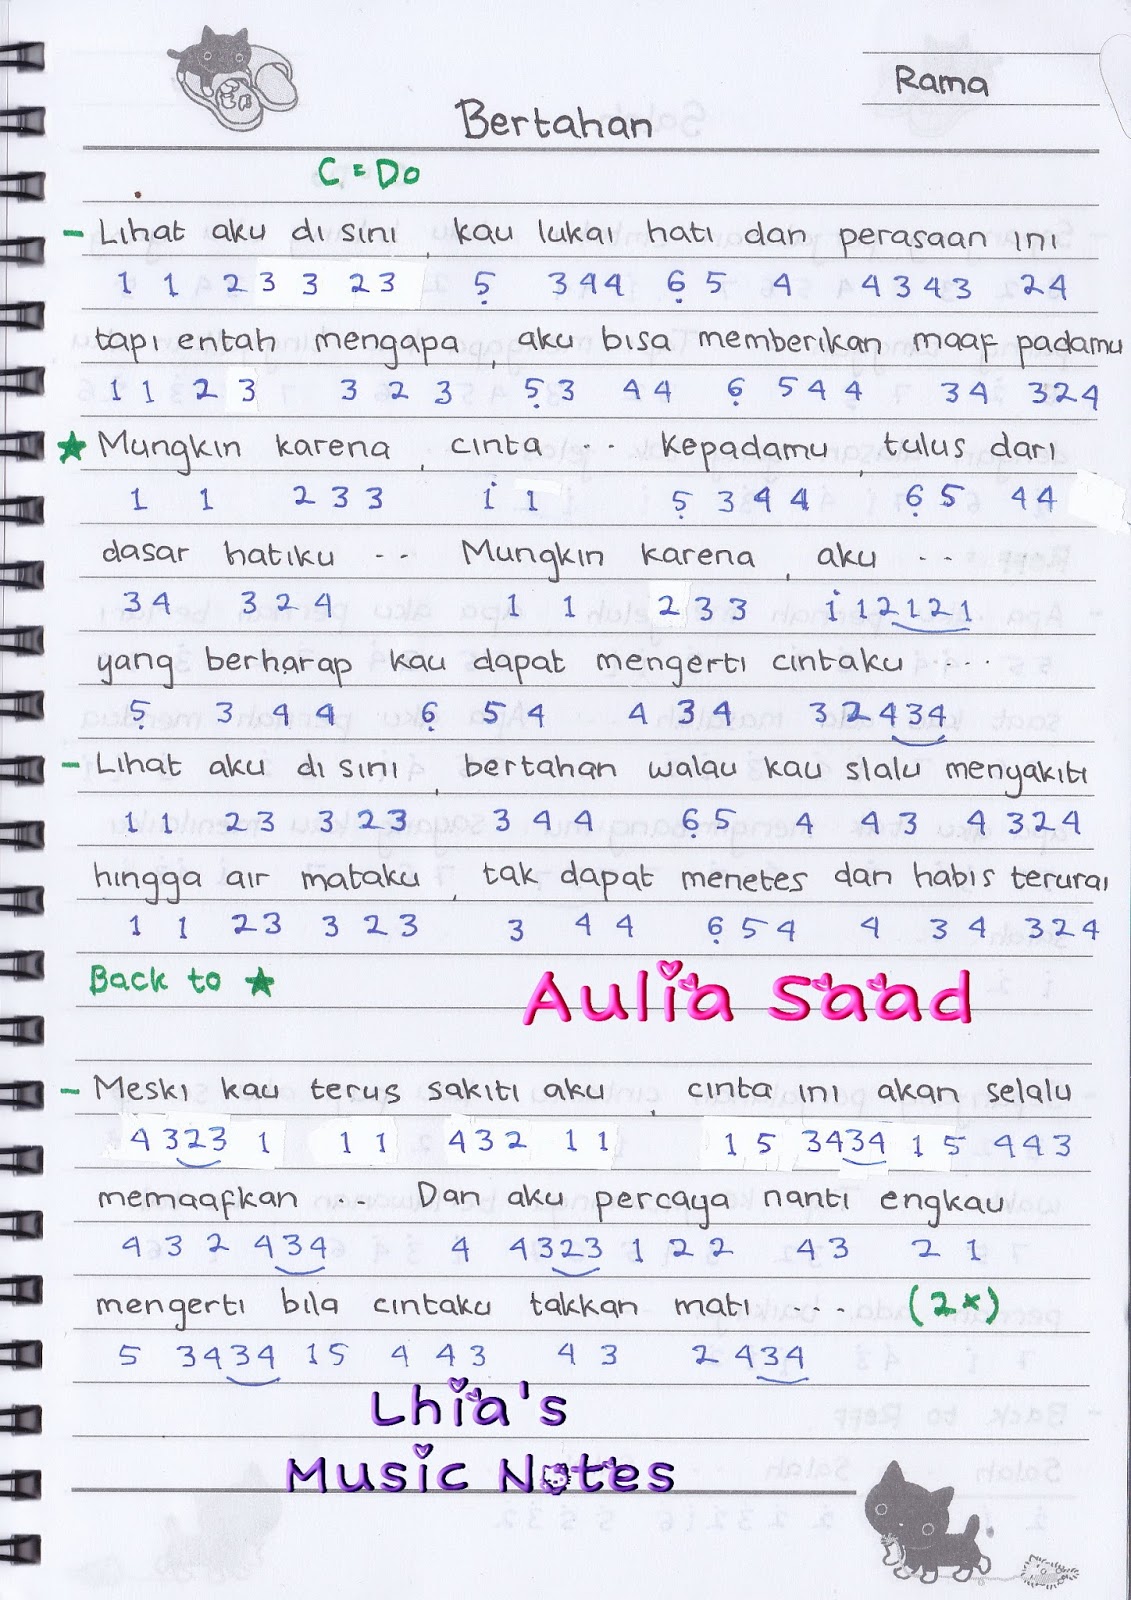 Rama
Bertahan
C = Do
- Lihat aku disini, kau lukai hati dan perasaan ini
1 1 2 3 3 2 3 5̣ 3 4 4 6̣ 5 4 4 3 4 3 2 4
tapi entah mengapa, aku bisa memberikan maaf padamu
1 1 2 3 3 2 3 5̣ 3 4 4 6̣ 5 4 4 3 4 3 2 4
★ Mungkin karena, cinta -- kepadamu, tulus dari
1 1 2 3 3 i 1 5̣ 3 4 4 6̣ 5 4 4
dasar hatiku -- Mungkin karena, aku ---
3 4 3 2 4 1 1 2 3 3 i 1 2 1 2 1
yang berharap kau dapat mengerti cintaku ----
5̣ 3 4 4 6̣ 5 4 4 3 4 3 2 4 3 4
- Lihat aku di sini, bertahan walau kau slalu menyakiti
1 1 2 3 3 2 3 3 4 4 6̣ 5 4 4 3 4 3 2 4
hingga air mataku, tak dapat menetes dan habis terurai
1 1 2 3 3 2 3 3 4 4 6̣ 5 4 4 3 4 3 2 4
Back to ★
Aulia Saad
- Meski kau terus sakiti aku, cinta ini akan selalu
4 3 2 3 1 1 1 4 3 2 1 1 1 5 3 4 3 4 1 5 4 4 3
memaafkan -- Dan aku percaya nanti engkau
4 3 2 4 3 4 4 4 3 2 3 1 2 2 4 3 2 1
mengerti bila cintaku takkan mati ---- (2x)
5 3 4 3 4 1 5 4 4 3 4 3 2 4 3 4
Lhia's
Music Notes